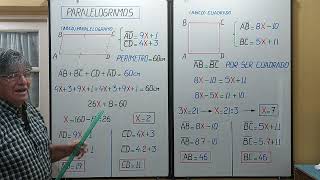 PARALELOGRAMOS
ABCD: PARALELOGRAMO
B
C
A
D
AD = 9X+1
CD = 4X+3
PERIMETRO = 60cm
AB+BC+CD+AD=60cm
4X+3+9X+1+4X+3+9X+1=60cm
26X+8=60
X=2
AD=9X
AD=19
CD=4X+3
CD=4.2+3
CD=11
ABCD: CUADRADO
B
C
A
D
AB=8X-10
BC=5X+11
AB=BC POR SER CUADRADO
8X-10=5X+11
8X-5X=11+10
3X=21
X=21:3
X=7
AB=8X-10
AB=8.7-10
AB=46
BC=5X+11
BC=5.7+11
BC=46